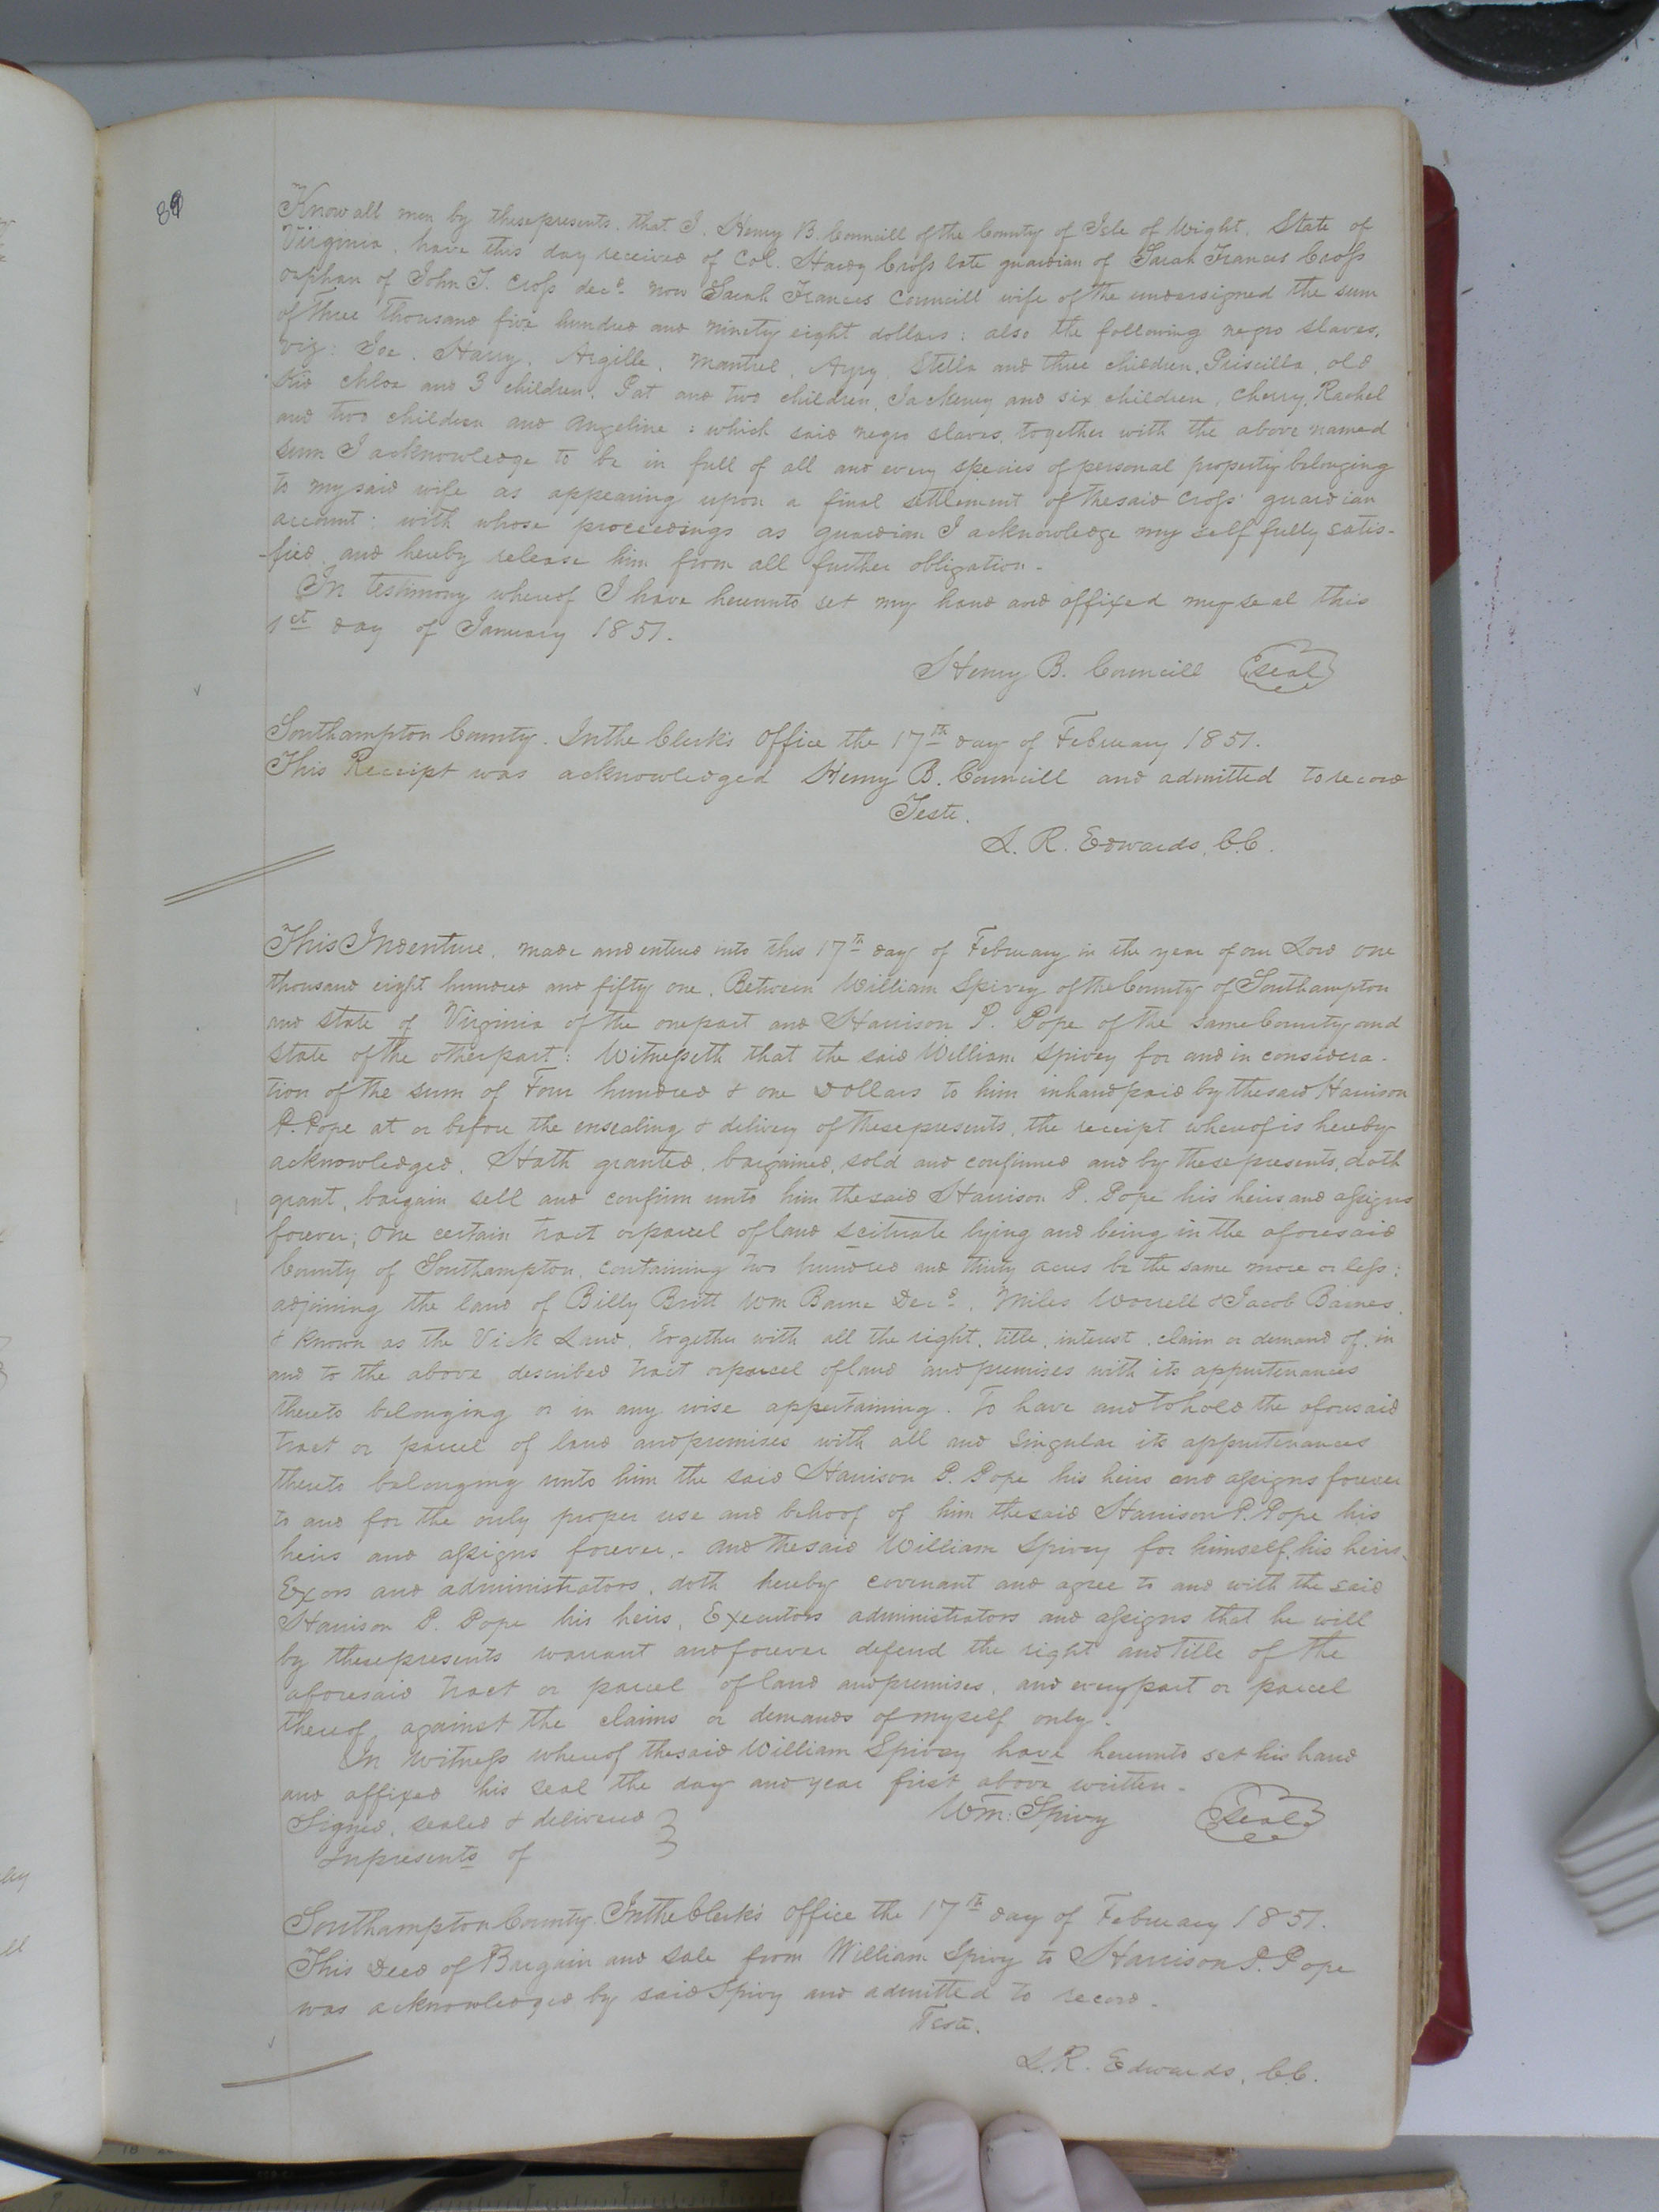 89
Know all men by these presents, that I, Henry B. Councill of the County of Isle of Wright, State of
Virginia, have this day received of Col. Hardy Cross late guardian of Sarah Frances Cross
orphan of John T. Cross decd. now Sarah Frances Councill wife of the undersigned the sum
of three thousand five hundred and ninety eight dollars; also the following negro slaves,
viz: Joe, Harry, Argille, Mantrel, Ayry, Stella and three children, Priscilla, old
Chloe and 3 children, Pat and two children, Jackeney and six children, Cherry, Rachel
and two children and Angeline: which said negro slaves, together with the above named
sum I acknowledge to be in full of all and every species of personal property belonging
to my said wife as appearing upon a final settlement of the said Cross' guardian
account: with whose proceedings as guardian I acknowledge my self fully satis-
-fied, and hereby release him from all further obligation.
In testimony whereof I have hereunto set my hand and affixed my seal this
1st day of January 1851.
Henry B. Councill (Seal)
Southampton County. In the Clerk's Office the 17th day of February 1851.
This Receipt was acknowledged Henry B. Councill and admitted to record
Teste.
L. R. Edwards, C.C.
This Indenture, made and entered into this 17th day of February in the year of our Lord one
thousand eight hundred and fifty one, Between William Spivey of the County of Southampton
and state of Virginia of the one part and Harrison P. Pope of the same County and
state of the other part: Witnesseth that the said William Spivey for and in considera-
tion of the sum of Four hundred & one Dollars to him in hand paid by the said Harrison
P. Pope at or before the ensealing & delivery of these presents, the receipt whereof is hereby
acknowledged, Hath granted, bargained, sold and confirmed and by these presents, doth
grant, bargain sell and confirm unto him the said Harrison P. Pope his heirs and assigns
forever; One certain tract or parcel of land scituate lying and being in the aforesaid
County of Southampton, containing two hundred and thirty acres be the same more or less;
adjoining the land of Billy Britt Wm Barne Decd, Miles Worrell & Jacob Barnes,
& known as the Vick Land, together with all the right, title, interest, claim or demand of, in
and to the above described tract or parcel of land and premises with its appurtenances
thereto belonging or in any wise appertaining. To have and to hold the aforesaid
tract or parcel of land and premises with all and singular its appurtenances
thereto belonging unto him the said Harrison P. Pope his heirs and assigns forever
to and for the only proper use and behoof of him the said Harrison P. Pope his
heirs and assigns forever, - and the said William Spivey for himself, his heirs,
Exors and administrators, doth hereby covenant and agree to and with the said
Harrison P. Pope his heirs, Executors administrators and assigns that he will
by these presents warrant and forever defend the right and title of the
aforesaid tract or parcel of land and premises, and every part or parcel
thereof, against the claims or demands of myself only.
In Witness whereof the said William Spivey have hereunto set his hand
and affixed his seal the day and year first above written.
Signed, sealed & delivered } Wm: Spivy (Seal)
In presents of
Southampton County. In the Clerk's Office the 17th day of February 1851.
This Deed of Bargain and Sale from William Spivy to Harrison P. Pope
was acknowledged by said Spivy and admitted to record.
Teste.
L. R. Edwards, C.C.